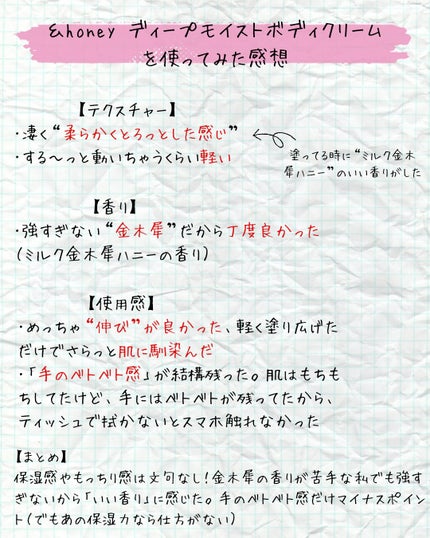 &honey ディープモイストボディクリーム
を使ってみた感想
【テクスチャー】
・凄く“柔らかくとろっとした感じ”
・する〜っと動いちゃうくらい軽い
塗ってる時に“ミルク金木
犀ハニー”のいい香りがした
【香り】
・強すぎない“金木犀”だから丁度良かった
(ミルク金木犀ハニーの香り)
【使用感】
・めっちゃ“伸び”が良かった、軽く塗り広げた
だけでさらっと肌に馴染んだ
・「手のベトベト感」が結構残った。肌はもちも
ちしてたけど、手にはベトベトが残ってたから、
ティッシュで拭かないとスマホ触れなかった
【まとめ】
保湿感やもっちり感は文句なし!金木犀の香りが苦手な私でも強す
ぎないから「いい香り」に感じた。手のベトベト感だけマイナスポイン
ト(でもあの保湿力なら仕方がない)